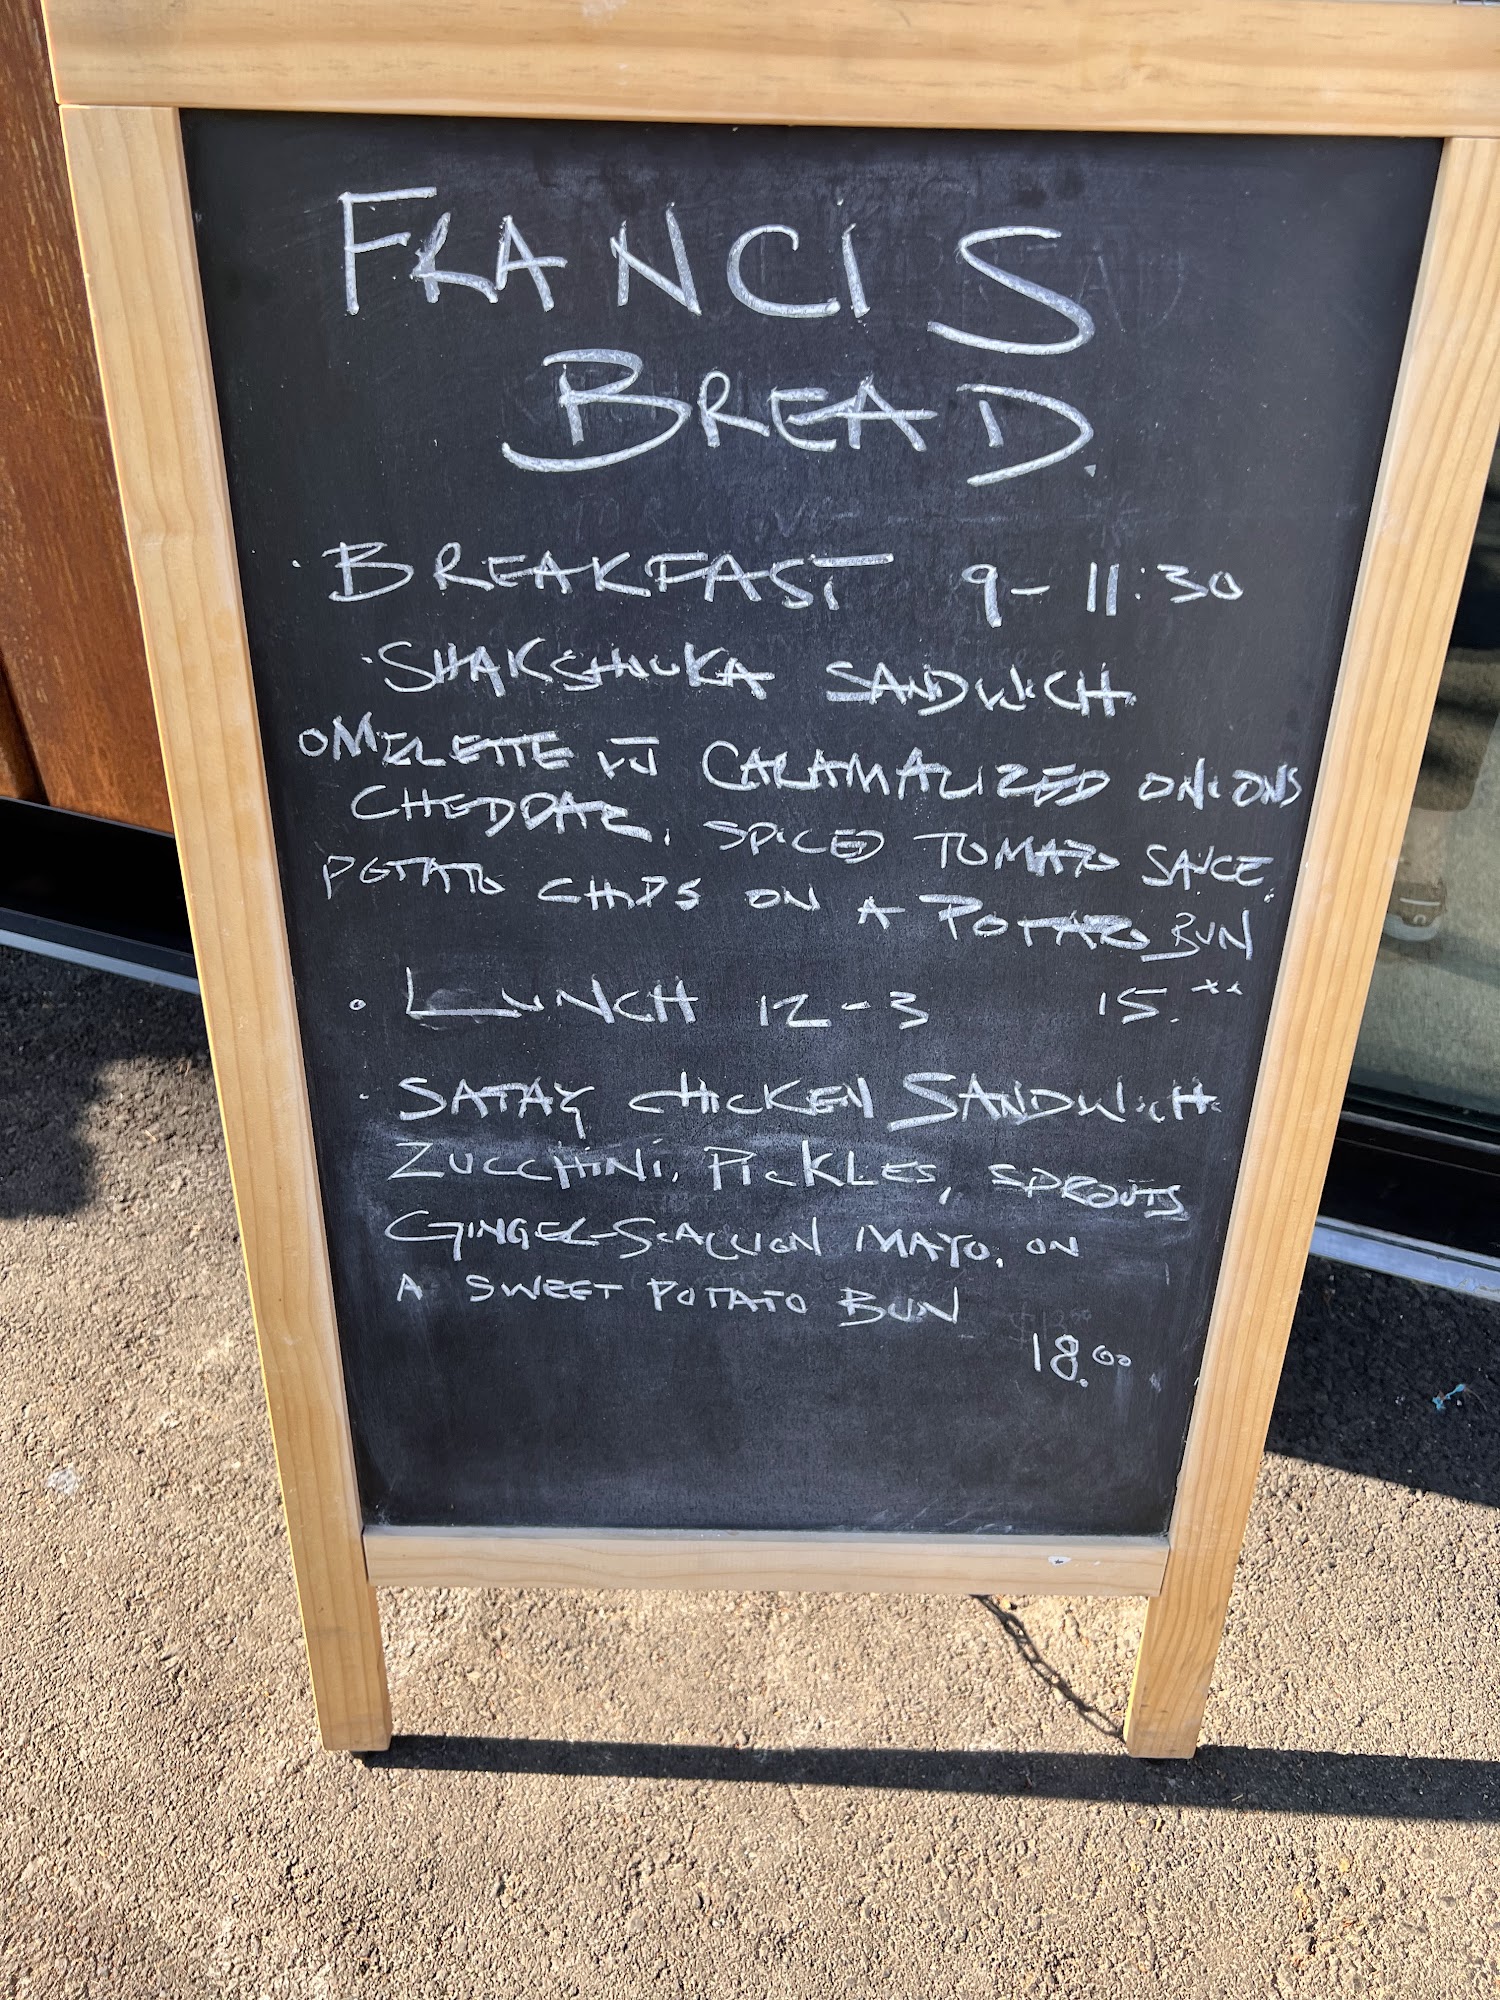 FRANCIS
BREAD
· BREAKFAST 9-11:30
· SHAKSHUKA SANDWICH
OMELETTE W CARAMALIZED ONIONS
CHEDDAR, SPICED TOMATO SAUCE
POTATO CHIPS ON A POTATO BUN
· LUNCH 12-3 15.
· SATAY CHICKEN SANDWICH
ZUCCHINI, PICKLES, SPROUTS
GINGER-SCALLION MAYO, ON
A SWEET POTATO BUN
18.00